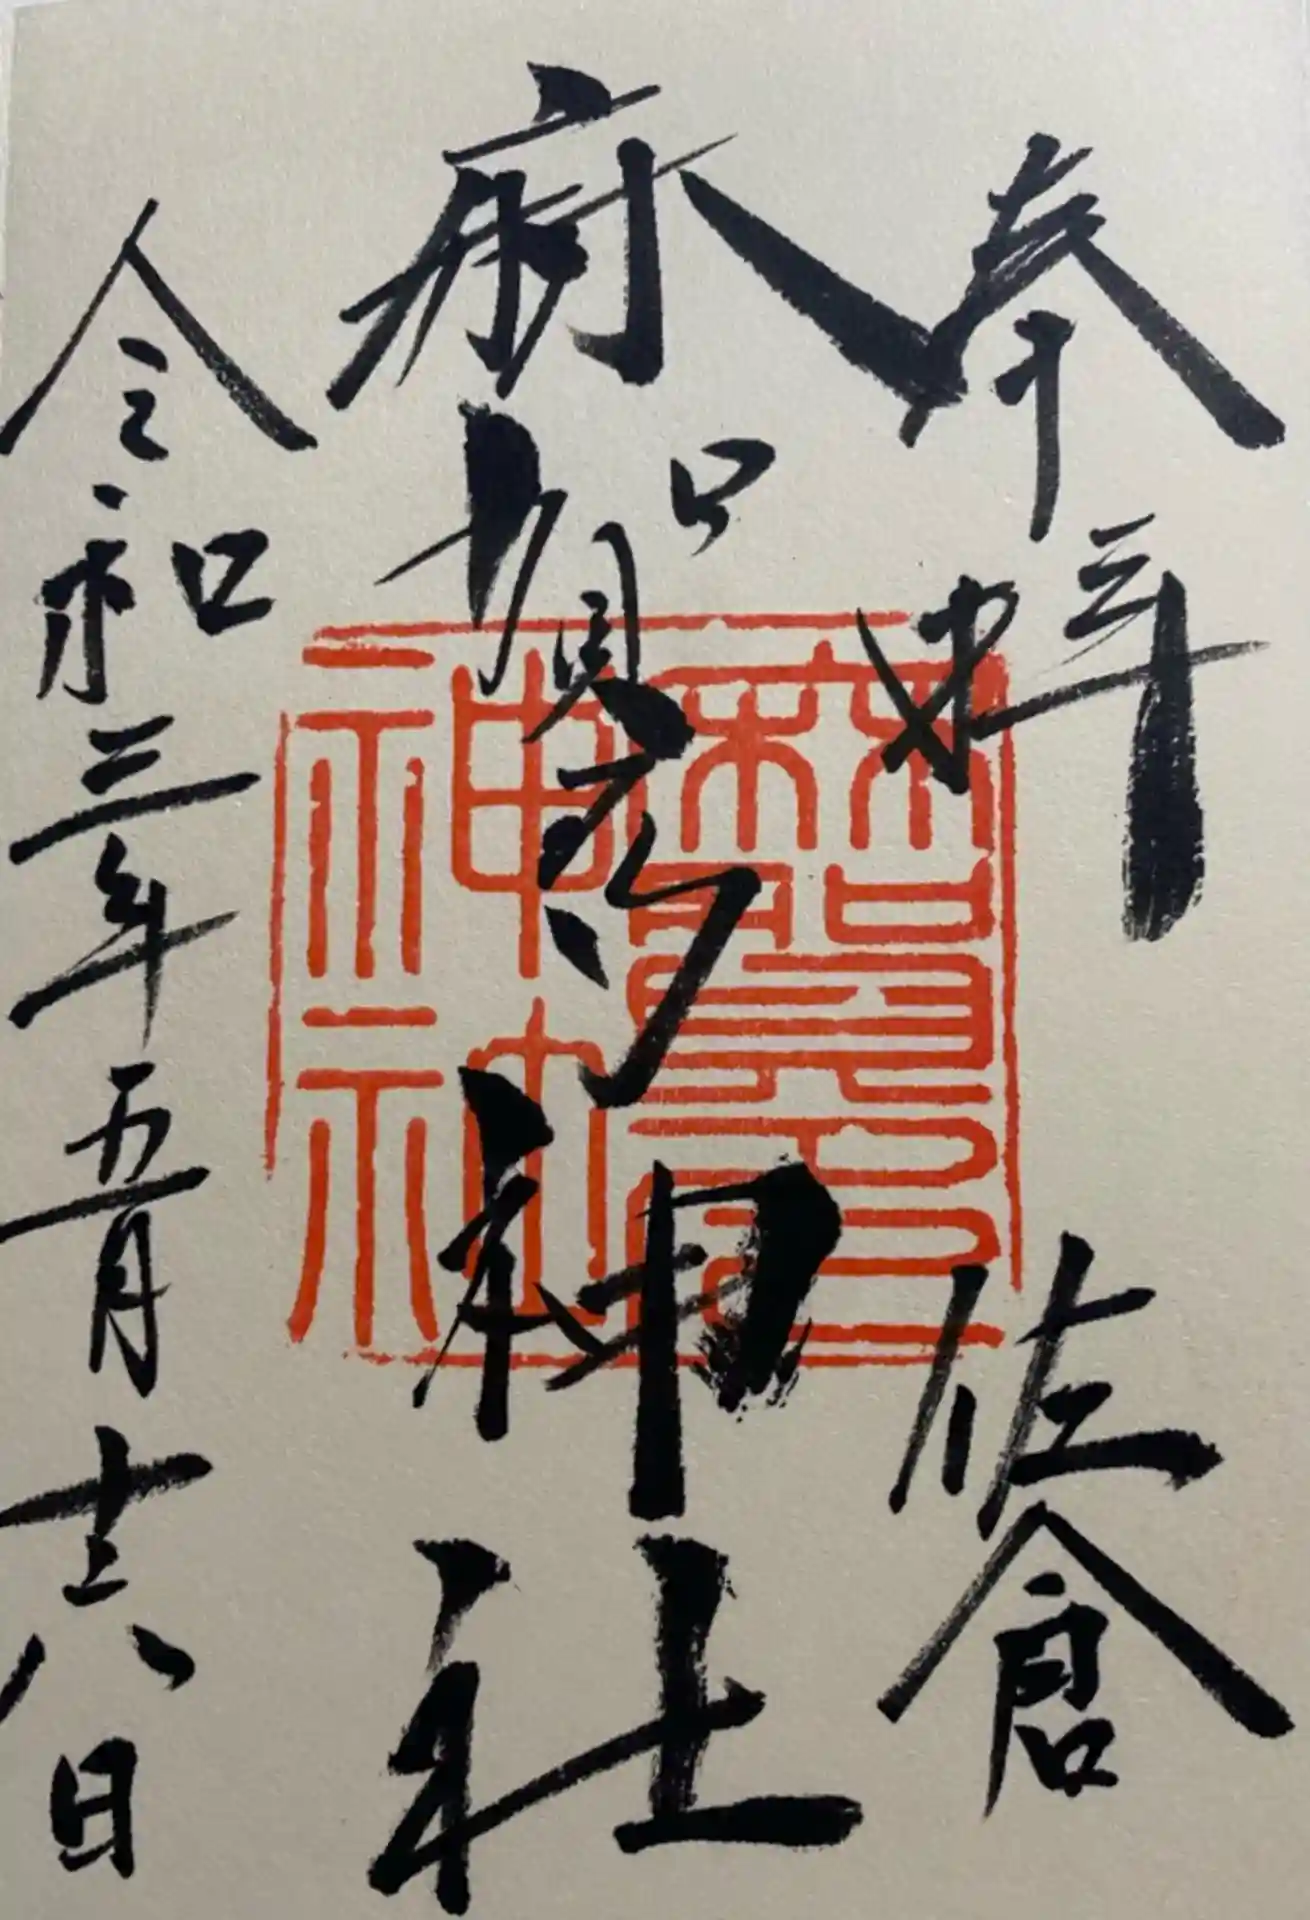 奉拝 佐倉
麻賀多神社
令和三年五月十六日
麻賀多
神社